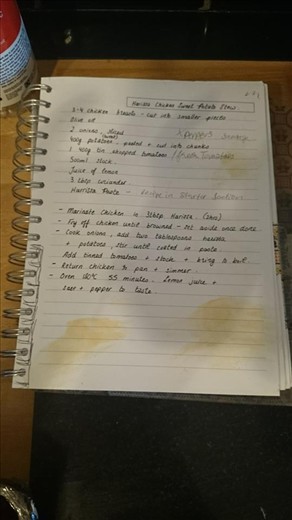 Harissa Chicken Sweet Potato Stew
3-4 chicken breasts - cut into smaller pieces
Olive oil
2 onions - sliced
(sweet)
400g potatoes - peeled + cut into chunks
1 400g tin chopped tomatoes / Fresh Tomatoes
500ml stock
Juice of lemon
3 tbsp coriander
Harissa Paste - Recipe in
- Marinate chicken in 3tbsp Harissa
- Fry off chicken until browned - set aside once done
- Cook onions, add two tablespoons harissa
+ potatoes, stir until coated in paste.
Add tinned tomatoes + stock + bring to boil
- Return chicken to pan + simmer.
- Oven 55 minutes. Lemon juice +
+ pepper to taste